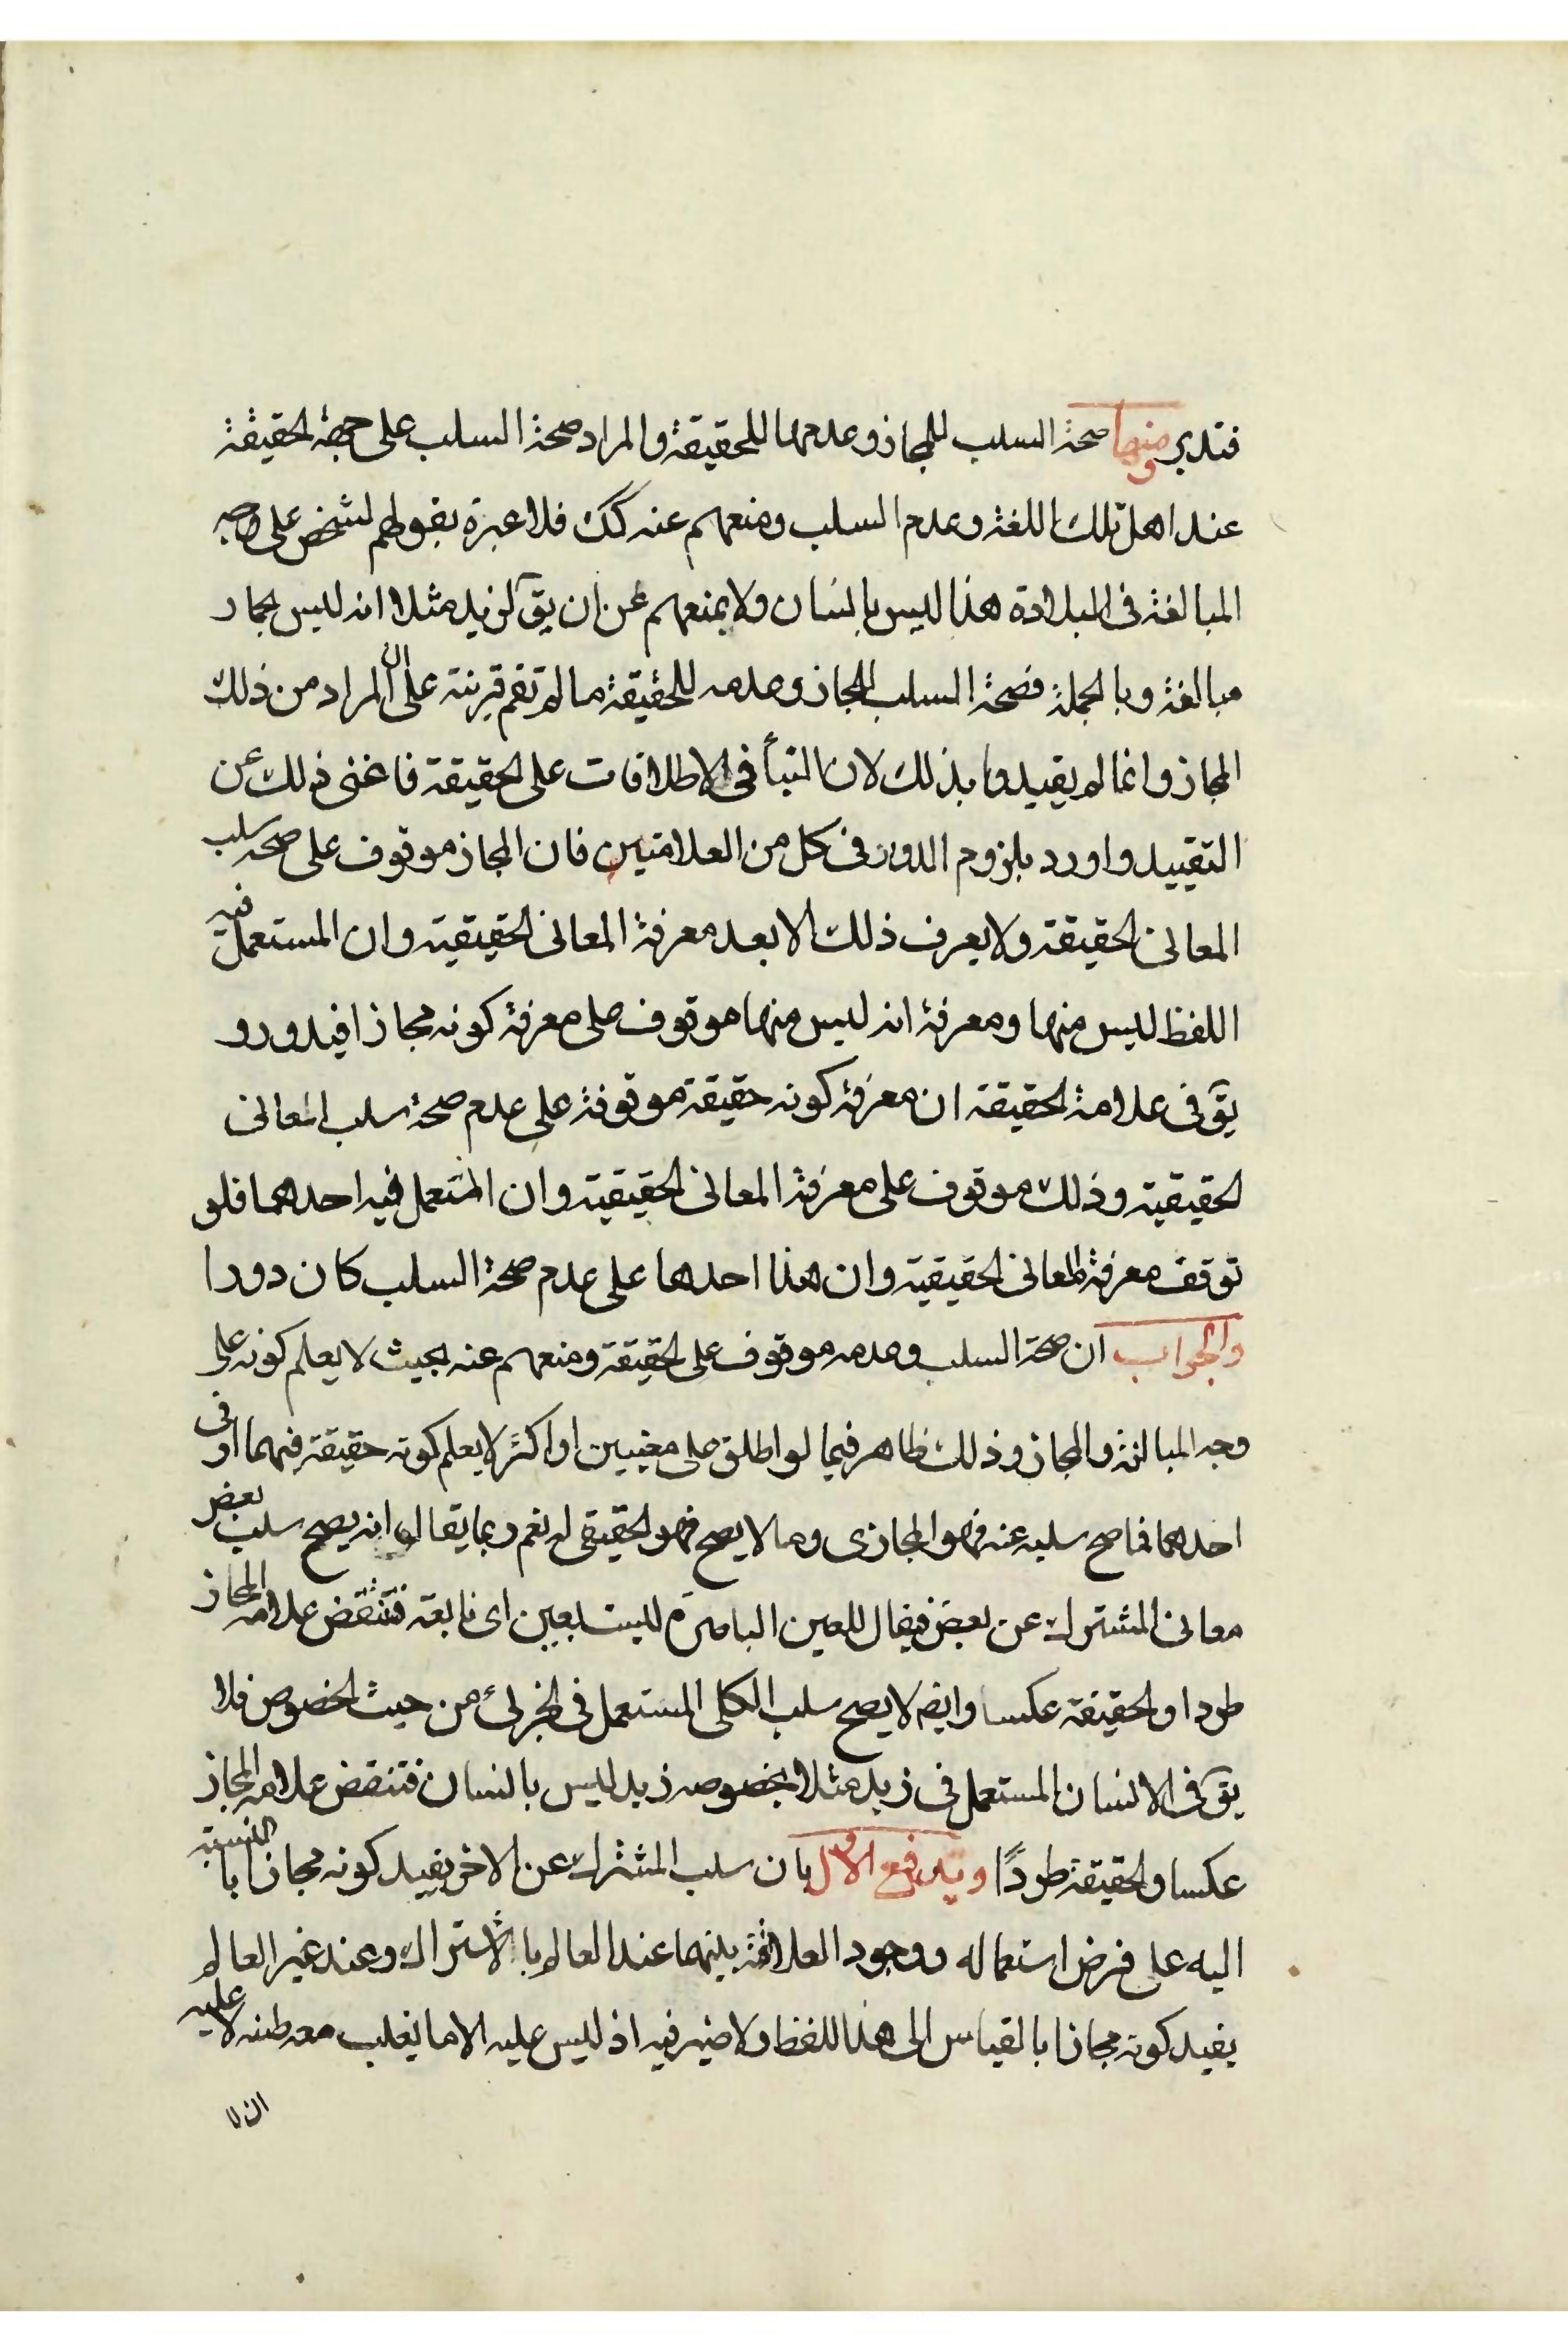 فتدبر ومنها صحة السلب للمجاز وعدمها للحقيقة والمراد صحة السلب على جهة الحقيقة
عند اهل تلك اللغة وعدم السلب ومنعهم عنه كك فلا عبرة بقولهم لشخص على وجه
المبالغة في البلادة هذا ليس بانسان ولا بمنعهم عن ان يقٓ لزيد مثلا انه ليس بحمار
مبالغة وبالجملة فصحة السلب للمجاز وعدمه للحقيقة ما لم تقم قرينة على ان المراد من ذلك
المجاز وانما لم يقيدوا بذلك لان البناء في الاطلاقات على الحقيقة فاغنى ذلك عن
التقييد واورد بلزوم الدور في كل من العلامتين فان المجاز موقوف على صحة سلب
المعاني الحقيقة ولا يعرف ذلك الا بعد معرفة المعاني الحقيقية وان المستعمل فيه
اللفظ ليس منها ومعرفة انه ليس منها موقوف على معرفة كونه مجازا فيدور و
يقٓ في علامة الحقيقة ان معرفة كونه حقيقة موقوفة على عدم صحة سلب المعاني
الحقيقية وذلك موقوف على معرفة المعاني الحقيقية وان المستعمل فيه احدهما فلو
توقف معرفة المعاني الحقيقية وان هذا احدها على عدم صحة السلب كان دورا
والجواب ان صحة السلب وعدمه موقوف على الحقيقة ومنعهم عنه بحيث لا يعلم كونه على
وجه المبالغة والمجاز وذلك ظاهر فيما لو اطلق على معنيين او اكثر لا يعلم كونه حقيقة فيهما او في
احدهما فما صح سلبه عنه فهو المجازي وما لا يصح فهو الحقيقي له نعم ربما يقال انه يصح سلب بعض
معاني المشترك عن بعض فيقال للعين الباصرة ليست بعين اى نابعة فتنتقض علامة المجاز
طردا والحقيقة عكسا وايضم لا يصح سلب الكلي المستعمل في الجزئي من حيث الخصوص فلا
يقٓ في الانسان المستعمل في زيد مثلا بخصوصه زيد ليس بانسان فتنتقض علامة المجاز
عكسا والحقيقة طردًا ويدفع الاول بان سلب المشترك عن الاخر يفيد كونه مجازا بالنسبة
اليه على فرض استعماله ووجود العلاقة بينهما عند العالم بالاشتراك وعند غير العالم
يفيد كونه مجازا بالقياس الى هذا اللفظ ولا ضير فيه اذ ليس عليه الا ما يغلب معه ظنه لا عليه